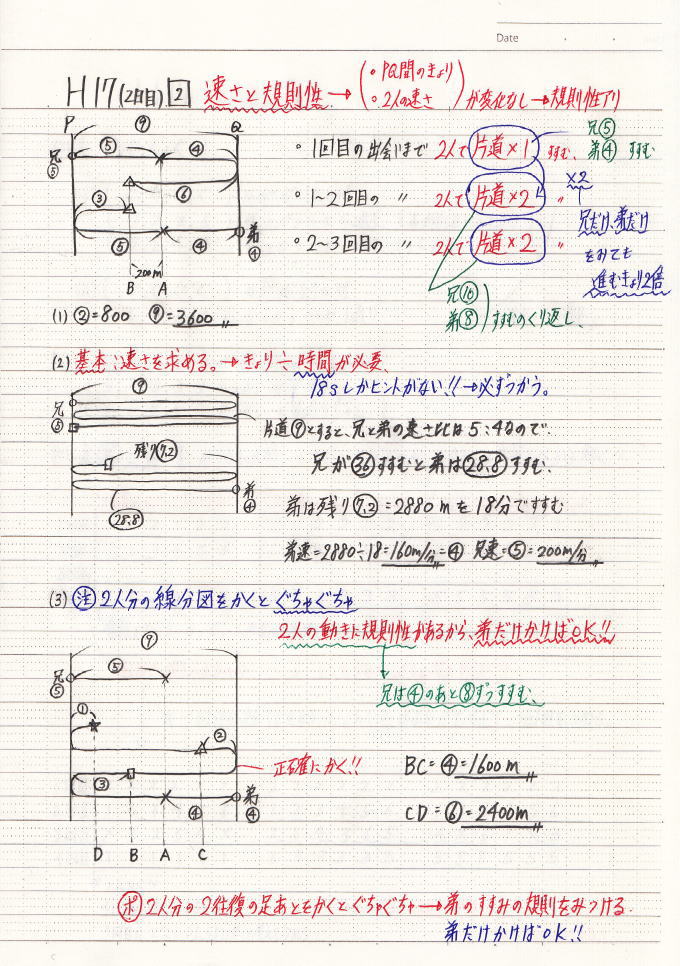 Date
H17(2日目) 2 速さと規則性→(。PQ間のきょり 。2人の速さ)が変化なし→規則性アリ
P ⑨ Q
兄⑤ ⑤ ④
③ ⑥
⑤ ④ 弟④
200m
B A
。1回目の出会いまで 2人で片道×1すすむ、 兄⑤ 弟④ すすむ
。1~2回目の 〃 2人で片道×2 〃
。2~3回目の 〃 2人で片道×2 〃
×2
兄だけ、弟だけ
をみても
進むきょり2倍
兄⑩
弟⑧ すすむのくり返し、
(1) ②=800 ⑨=3600〃
(2) 基本:速さを求める。→きょり÷時間が必要、
しかヒントがない!!→必ずつかう。
⑨
兄⑤
残り(7.2)
弟④
(28.8)
片道⑨とすると、兄と弟の速さ比は5:4なので、
兄が㊱すすむと弟は(28.8)すすむ、
弟は残り(7.2)=2880mを18分ですすむ
弟速=2880÷18=160m/分=④ 兄速=⑤=200m/分〃
(3) 注 2人分の線分図をかくとぐちゃぐちゃ
2人の動きに規則性があるから、弟だけかけばOK!!
兄は④のあと⑧ずつすすむ、
⑨
兄⑤ ⑤
①
②
正確にかく!!
③
④ 弟④
D B A C
BC=④=1600m〃
CD=⑥=2400m〃
ポ 2人分の2往復の足あとをかくとぐちゃぐちゃ→弟のすすみの規則をみつける.
弟だけかけばOK!!